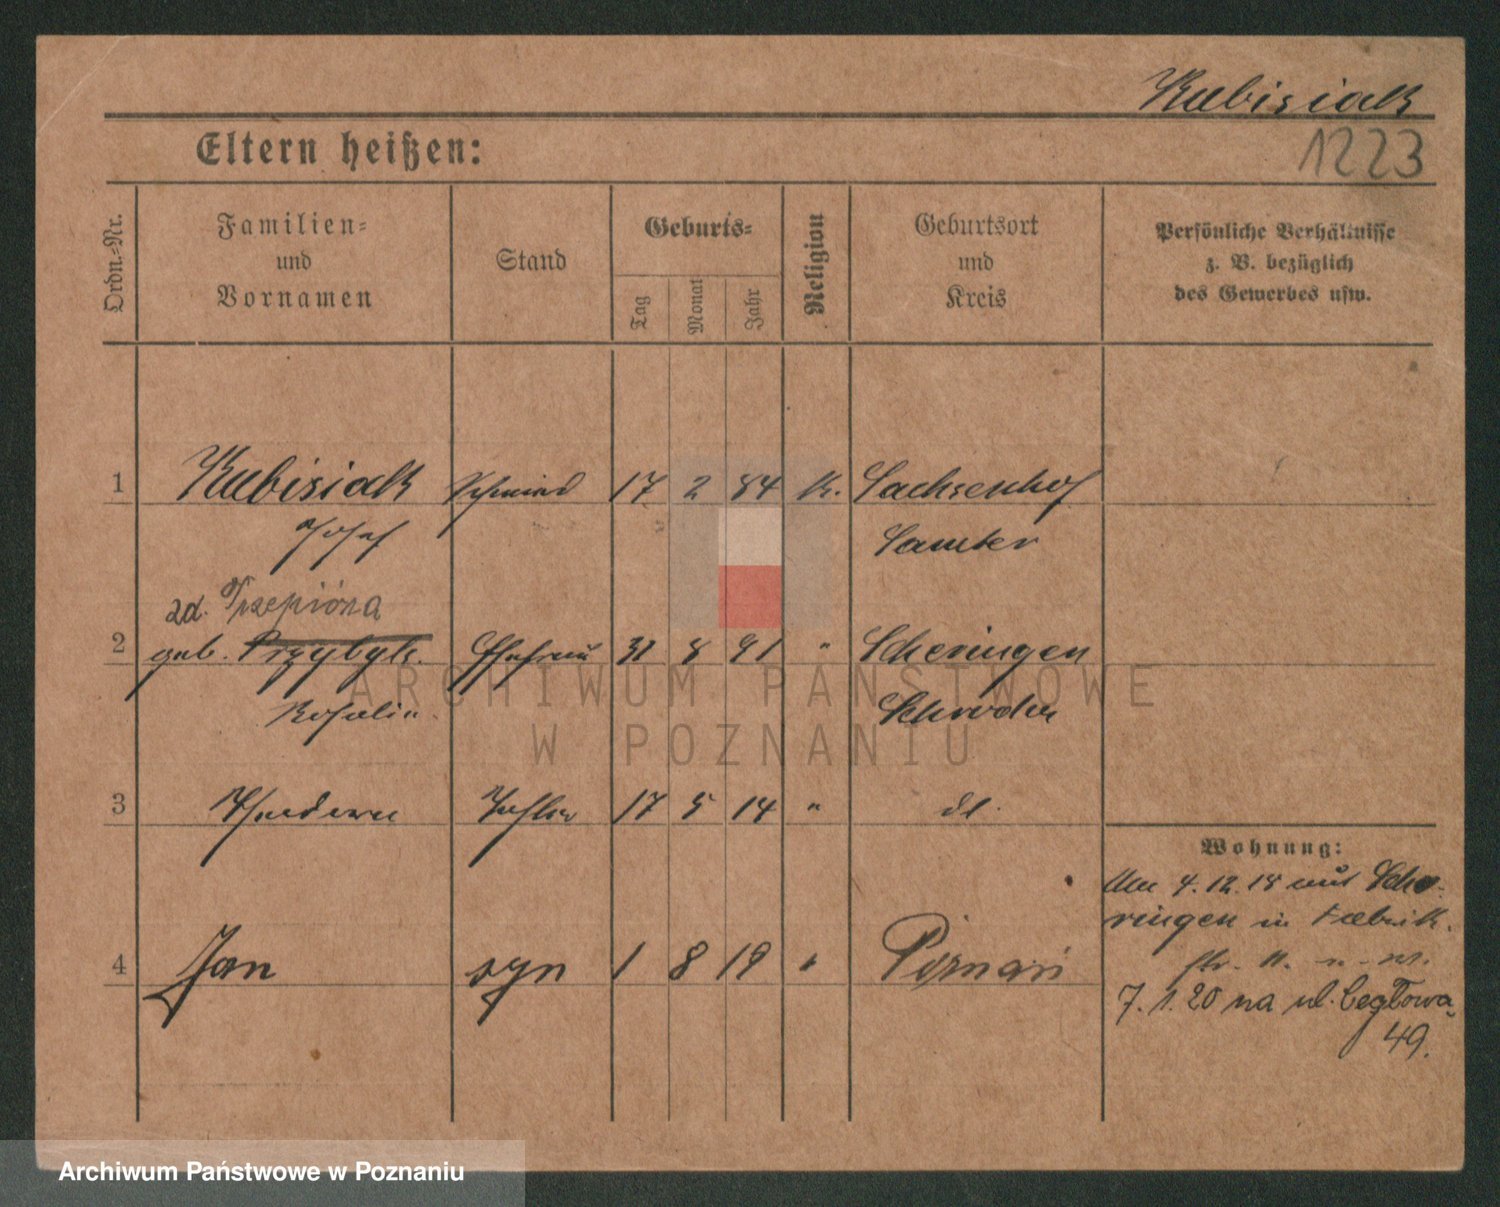 Kubisiak
1223
Eltern heißen:
Ordn.-Nr.
Familien-
und
Vornamen
Stand
Geburts-
Tag
Monat
Jahr
Religion
Geburtsort
und
Kreis
Persönliche Verhältnisse
z. B. bezüglich
des Gewerbes usw.
1 Kubisiak Schmied 17 2 84 K. Sachsenhof
Josef Samter
zd. Trzepióra
2 geb. Przybyl. Ehefrau 31 8 91 " Scheringen
Rosalie Schroda
3 Tochter 17 5 14 " dl.
Wohnung:
4. 12. 18 aus Sche-
ringen in Fabrik-
str.
4 Jan syn 1 8 19 " Poznań
7. 1. 20 na ul. Ceglowa
49.
ARCHIWUM PAŃSTWOWE
W POZNANIU
Archiwum Państwowe w Poznaniu